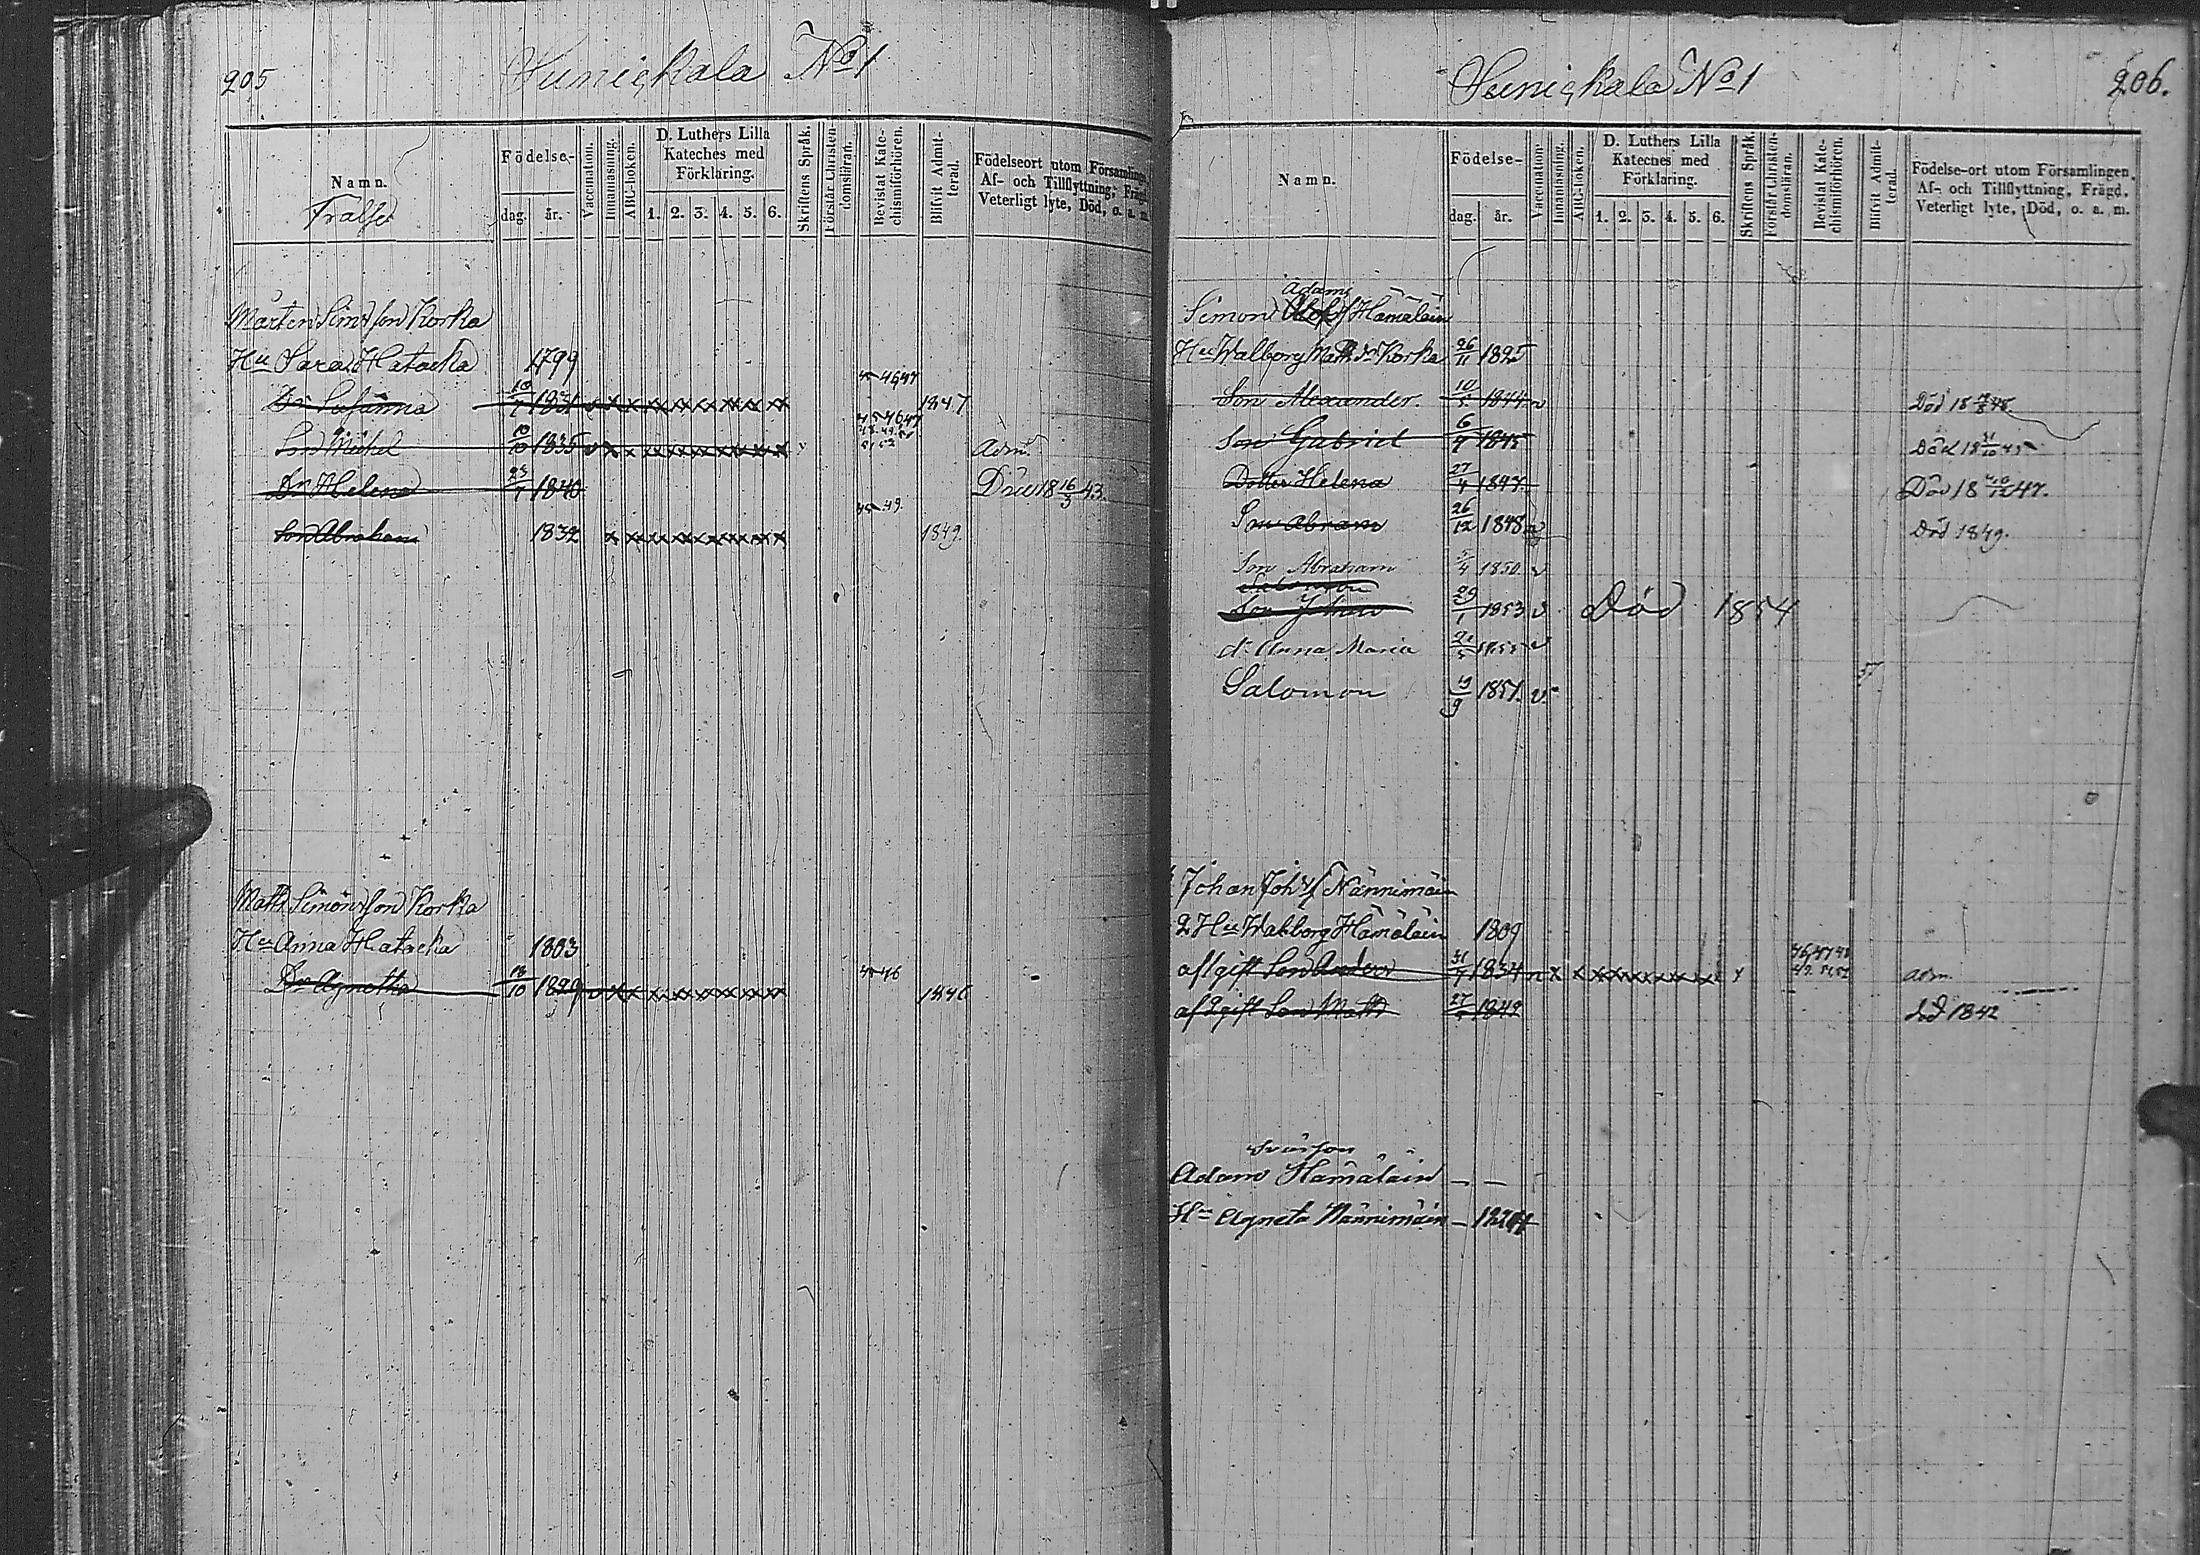 205
Suniskala No 1
Namn.
Frälse
Födelse-
dag. år.
Vaccination.
Innanläsning.
ABC-boken.
D. Luthers Lilla
Kateches med
Förklaring.
1. 2. 3. 4. 5. 6.
Skriftens Språk.
Förstår Christen-
domsläran.
Bevistat Kate-
chismiförhören.
Blifvit Admit-
terad.
Födelseort utom Församlingen
Af- och Tillflyttning, Frägd,
Veterligt lyte, Död, o. a. m.
Mårten Sim sson Korka
Hu Sara Hatacka 1799
Dr Susanna 10/7 1831 v x x x x x x x x x 45 46 47 1847
Son Michel 10/10 1835 v x x x x x x x x x 45 46 47 Adm.
Dr Helena 1840 18 16/3 43.
Son Abraham 1832 x x x x x x x x x 45 49 1849.
Math Simonsson Korka
Hu Anna Hatacka 1803
Dr Agnetha 18/10 1829 v x x x x x x x x x 45 46 1846
206.
Suniskala No 1
Namn.
Födelse-
dag. år.
Vaccination.
Innanläsning.
ABC-boken.
D. Luthers Lilla
Kateches med
Förklaring.
1. 2. 3. 4. 5. 6.
Skriftens Språk.
Förstår Christen-
domsläran.
Bevistat Kate-
chismiförhören.
Blifvit Admit-
terad.
Födelse-ort utom Församlingen,
Af- och Tillflyttning, Frägd,
Veterligt lyte, Död, o. a. m.
Adams
Simon Hämäläin
Hu Walborg Math dr Korka 26/11 1825
Son Alexander. 1844 v Död 18 48
Son Gabriel 1845 Död 18 31/10 45
Dotter Helena 27/4 1847. Död 18 47.
Son Abram 26/12 1848 v Död 1849.
Son Abraham 5/4 1850 v
Salomon
Son Johan 29/1 1853 v Död 1854
dr Anna Maria v
Salomon 19/9 1857. v.
57
Johan Joh s Nännimäin
2 Hu Walborg Hämäläin 1809
af 1 gift Son Anders 31/7 1834 n x x x x x x x x x 46 47 48 adm
af 2 gift Son Math 1842 död 1842
Svärson
Adam Hämäläin — —
Hu Agneta Nännimäin —